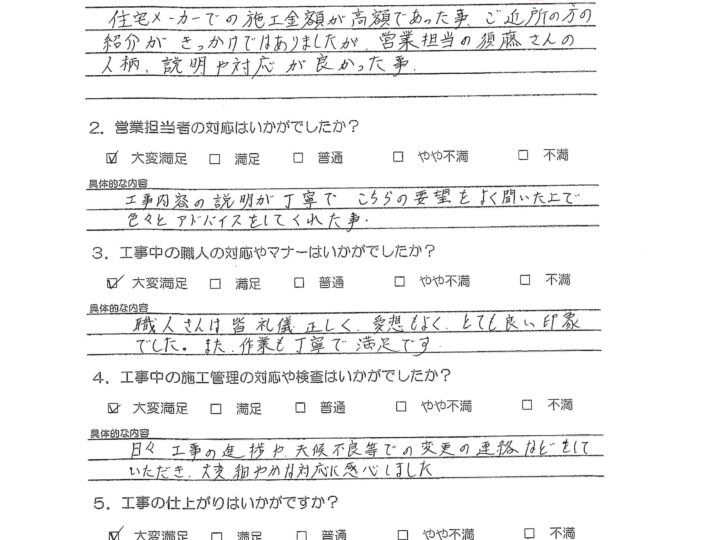 住宅メーカーでの施工金額が高額であった事、ご近所の方の
紹介がきっかけではありましたが、営業担当の須藤さんの
人柄、説明や対応が良かった事.
2．営業担当者の対応はいかがでしたか？
☑ 大変満足 □ 満足 □ 普通 □ やや不満 □ 不満
具体的な内容
工事内容の説明が丁寧で こちらの要望をよく聞いた上で
色々とアドバイスをしてくれた事.
3．工事中の職人の対応やマナーはいかがでしたか？
☑ 大変満足 □ 満足 □ 普通 □ やや不満 □ 不満
具体的な内容
職人さんは皆礼儀正しく、愛想もよく、とても良い印象
でした。また、作業も丁寧で満足です
4．工事中の施工管理の対応や検査はいかがでしたか？
☑ 大変満足 □ 満足 □ 普通 □ やや不満 □ 不満
具体的な内容
日々 工事の進捗や、天候不良等での変更の連絡などをして
いただき、大変細やかな対応に感心しました
5．工事の仕上がりはいかがですか？
☑ 大変満足 □ 満足 □ 普通 □ やや不満 □ 不満